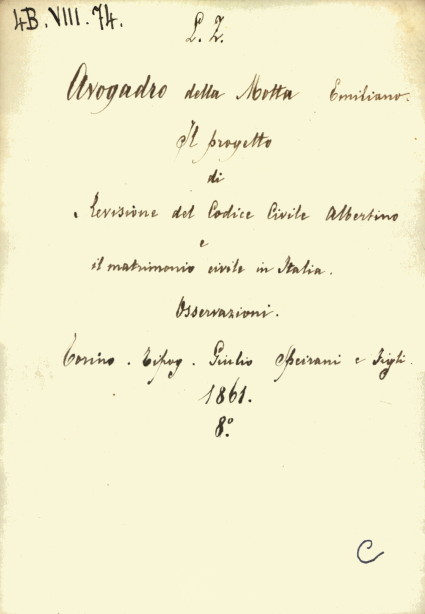 4B.VIII.74.
L. Z.
Avogadro della Motta Emiliano.
Il progetto
di
Revisione del Codice Civile Albertino
e
il matrimonio civile in Italia.
Osservazioni.
Torino. Tipog. Giulio Speirani e Figli.
1861.
8º.
C